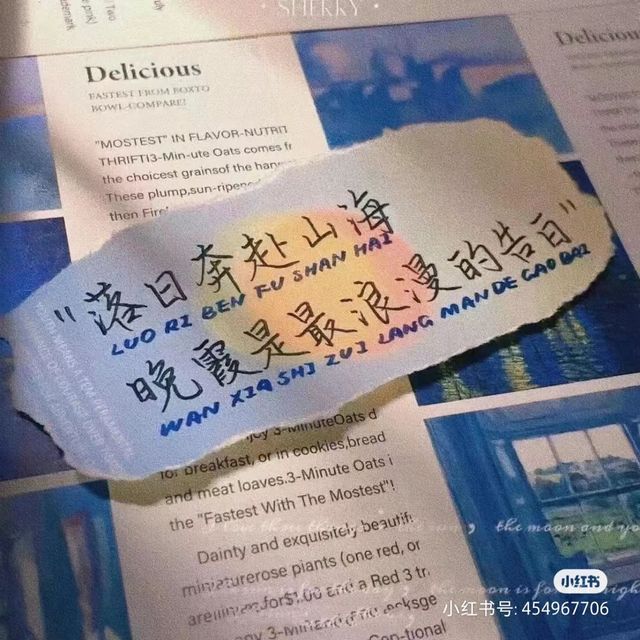 SHERRY
Delicious
FASTEST FROM BOXTO
BOWL-COMPARE!
"MOSTEST" IN FLAVOR-NUTRIT
THRIFTI3-Min-ute Oats comes fr
the choicest grainsof the
These plump,sun-ripene
then
"落日奔赴山海
LUO RI BEN FU SHAN HAI
晚霞是最浪漫的告白"
WAN XIA SHI ZUI LANG MAN DE GAO BAI
3-MinuteOats d
for breakfast, or in cookies,bread
and meat loaves.3-Minute Oats i
the "Fastest With The Mostest"!
the moon and yo
Dainty and exquisitely beautif
miniaturerose plants (one red, or
the moon is for
and a Red 3 tr
小红书
小红书号: 454967706